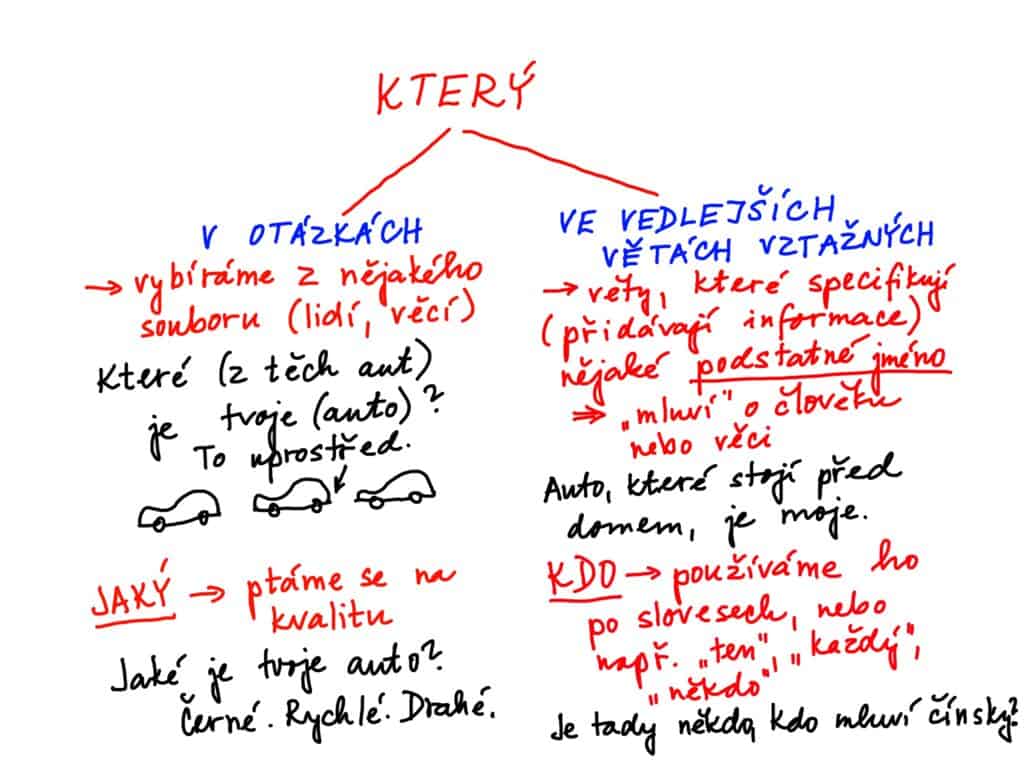 KTERÝ
V OTÁZKÁCH
→ vybíráme z nějakého
souboru (lidí, věcí)
Které (z těch aut)
je tvoje (auto)?
To uprostřed.
JAKÝ → ptáme se na
kvalitu
Jaké je tvoje auto?
Černé. Rychlé. Drahé.
VE VEDLEJŠÍCH
VĚTÁCH VZTAŽNÝCH
→ věty, které specifikují
(přidávají informace)
nějaké podstatné jméno
⇒ „mluví" o člověku
nebo věci
Auto, které stojí před
domem, je moje.
KDO → používáme ho
po slovesech, nebo
např. „ten", „každý",
„někdo"
Je tady někdo, kdo mluví čínsky?